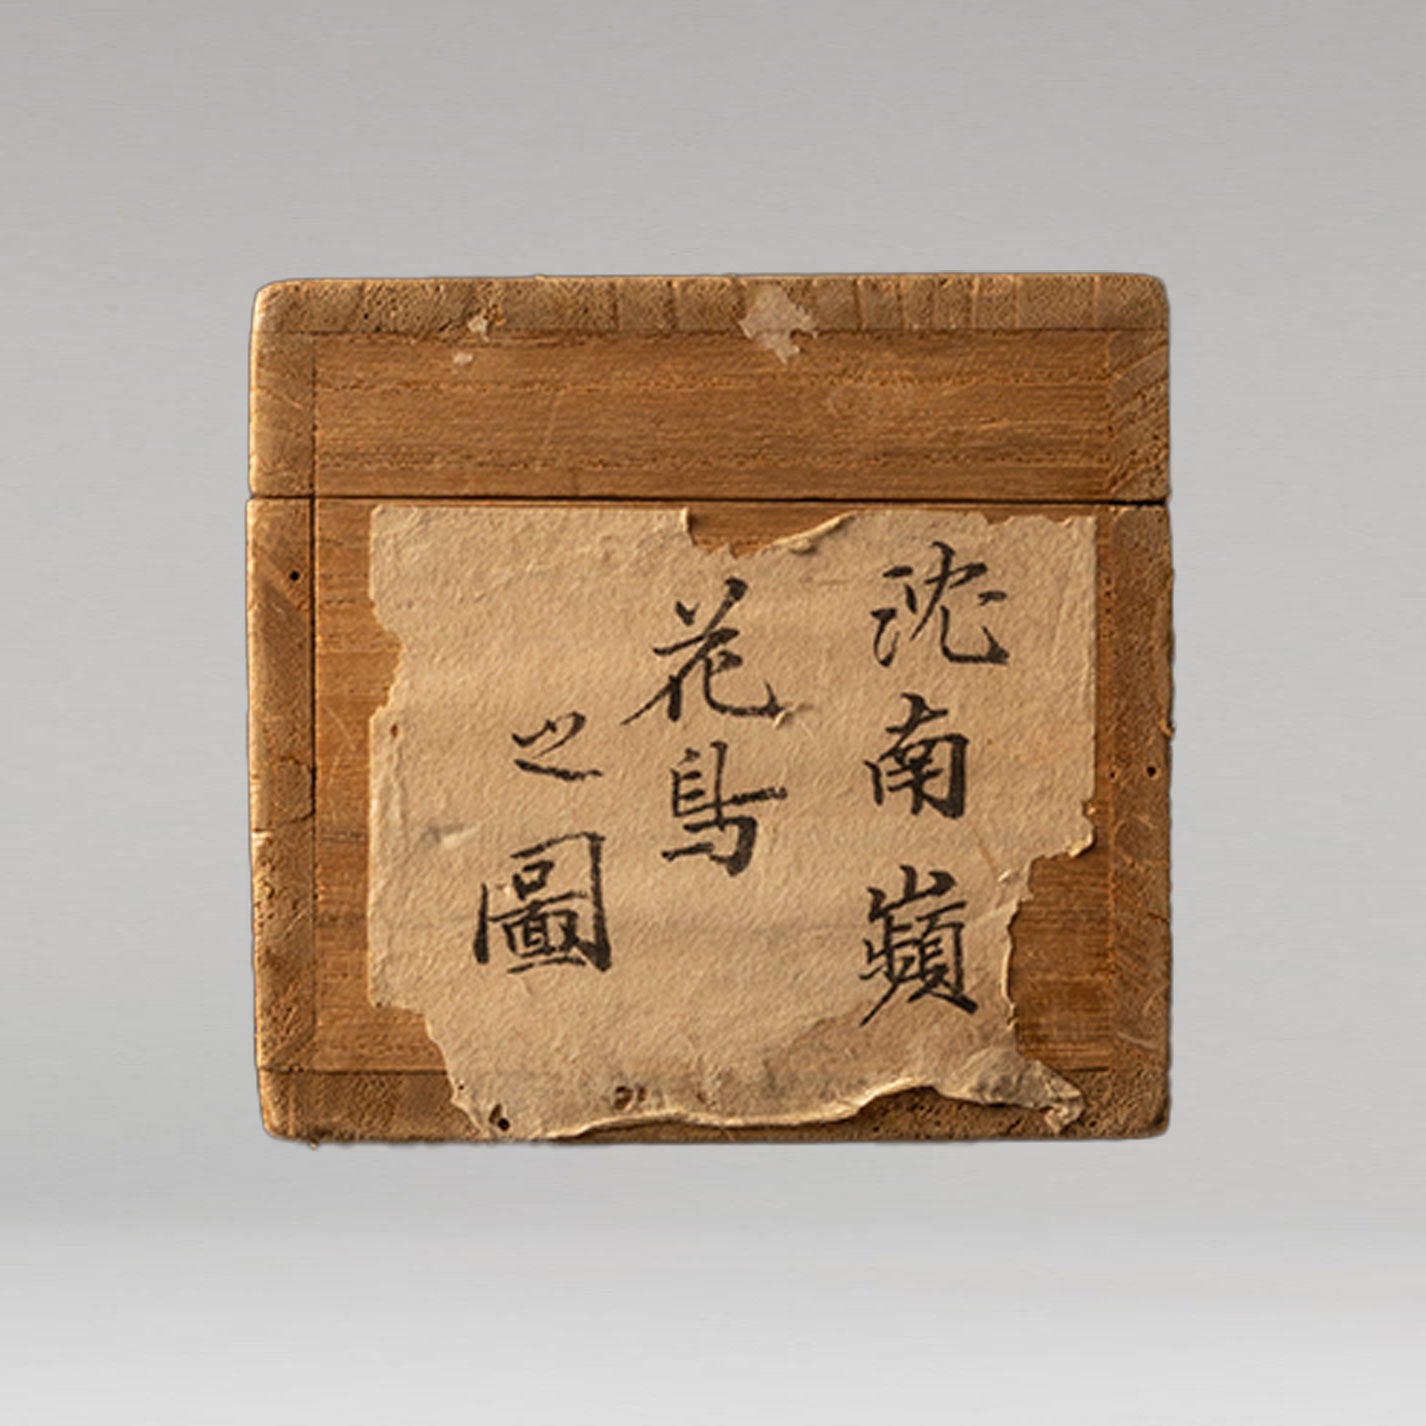 沈南蘋
花鳥
之圖